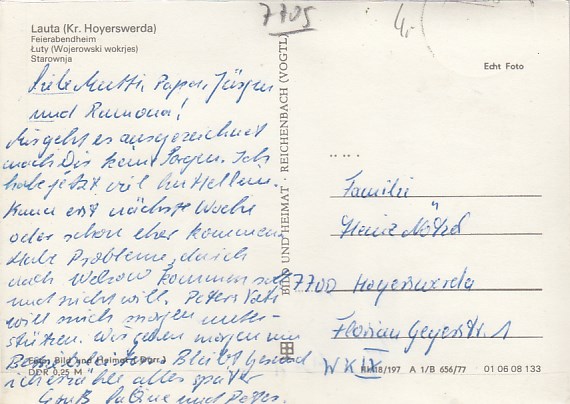 7705
4,-
Lauta (Kr. Hoyerswerda)
Feierabendheim
Łuty (Wojerowski wokrjes)
Starownja
Echt Foto
Liebe Mutti, Papa, Jürgen
und Ramona!
Mir geht es ausgezeichnet
mach Dir keine Sorgen. Ich
habe jetzt viel
Kann erst nächste Woche
oder schon eher kommen
Habe Probleme, da ich
nach Welzow kommen soll
und nicht will. Peters Vati
will mich morgen unter-
stützen. Wir gehen morgen
Bleibt gesund
ich erzähle alles später
Gruß und Peter.
BILD UND HEIMAT · REICHENBACH (VOGTL)
Familie
Heinz
7700 Hoyerswerda
Florian Geyerstr. 1
WK IX
Bild und Heimat
DDR 0,25 M
III/18/197 A 1/B 656/77 01 06 08 133